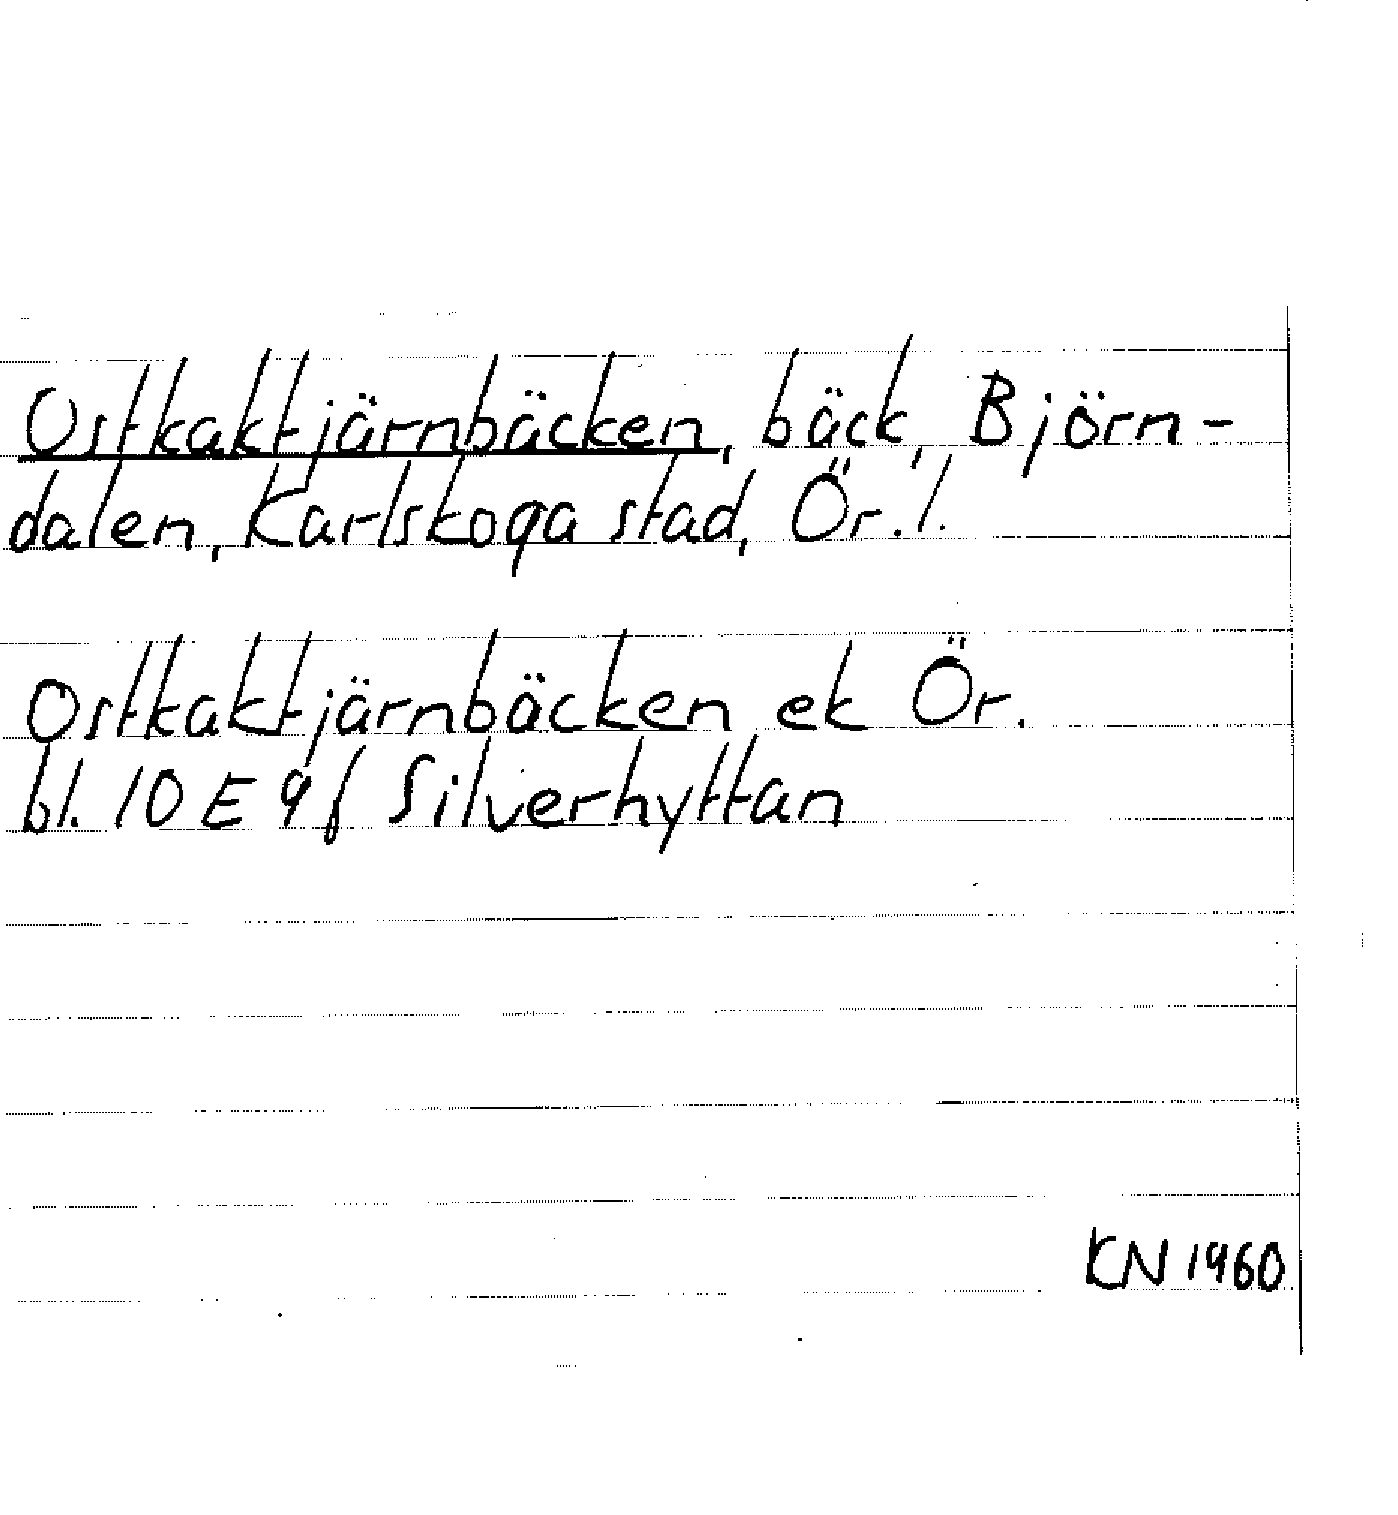 Ostkaktjärnbäcken, bäck, Björn-
dalen, Karlskoga stad, Ör. l.
Ostkaktjärnbäcken ek Ör.
bl. 10 E 9 f Silverhyttan
KN 1960